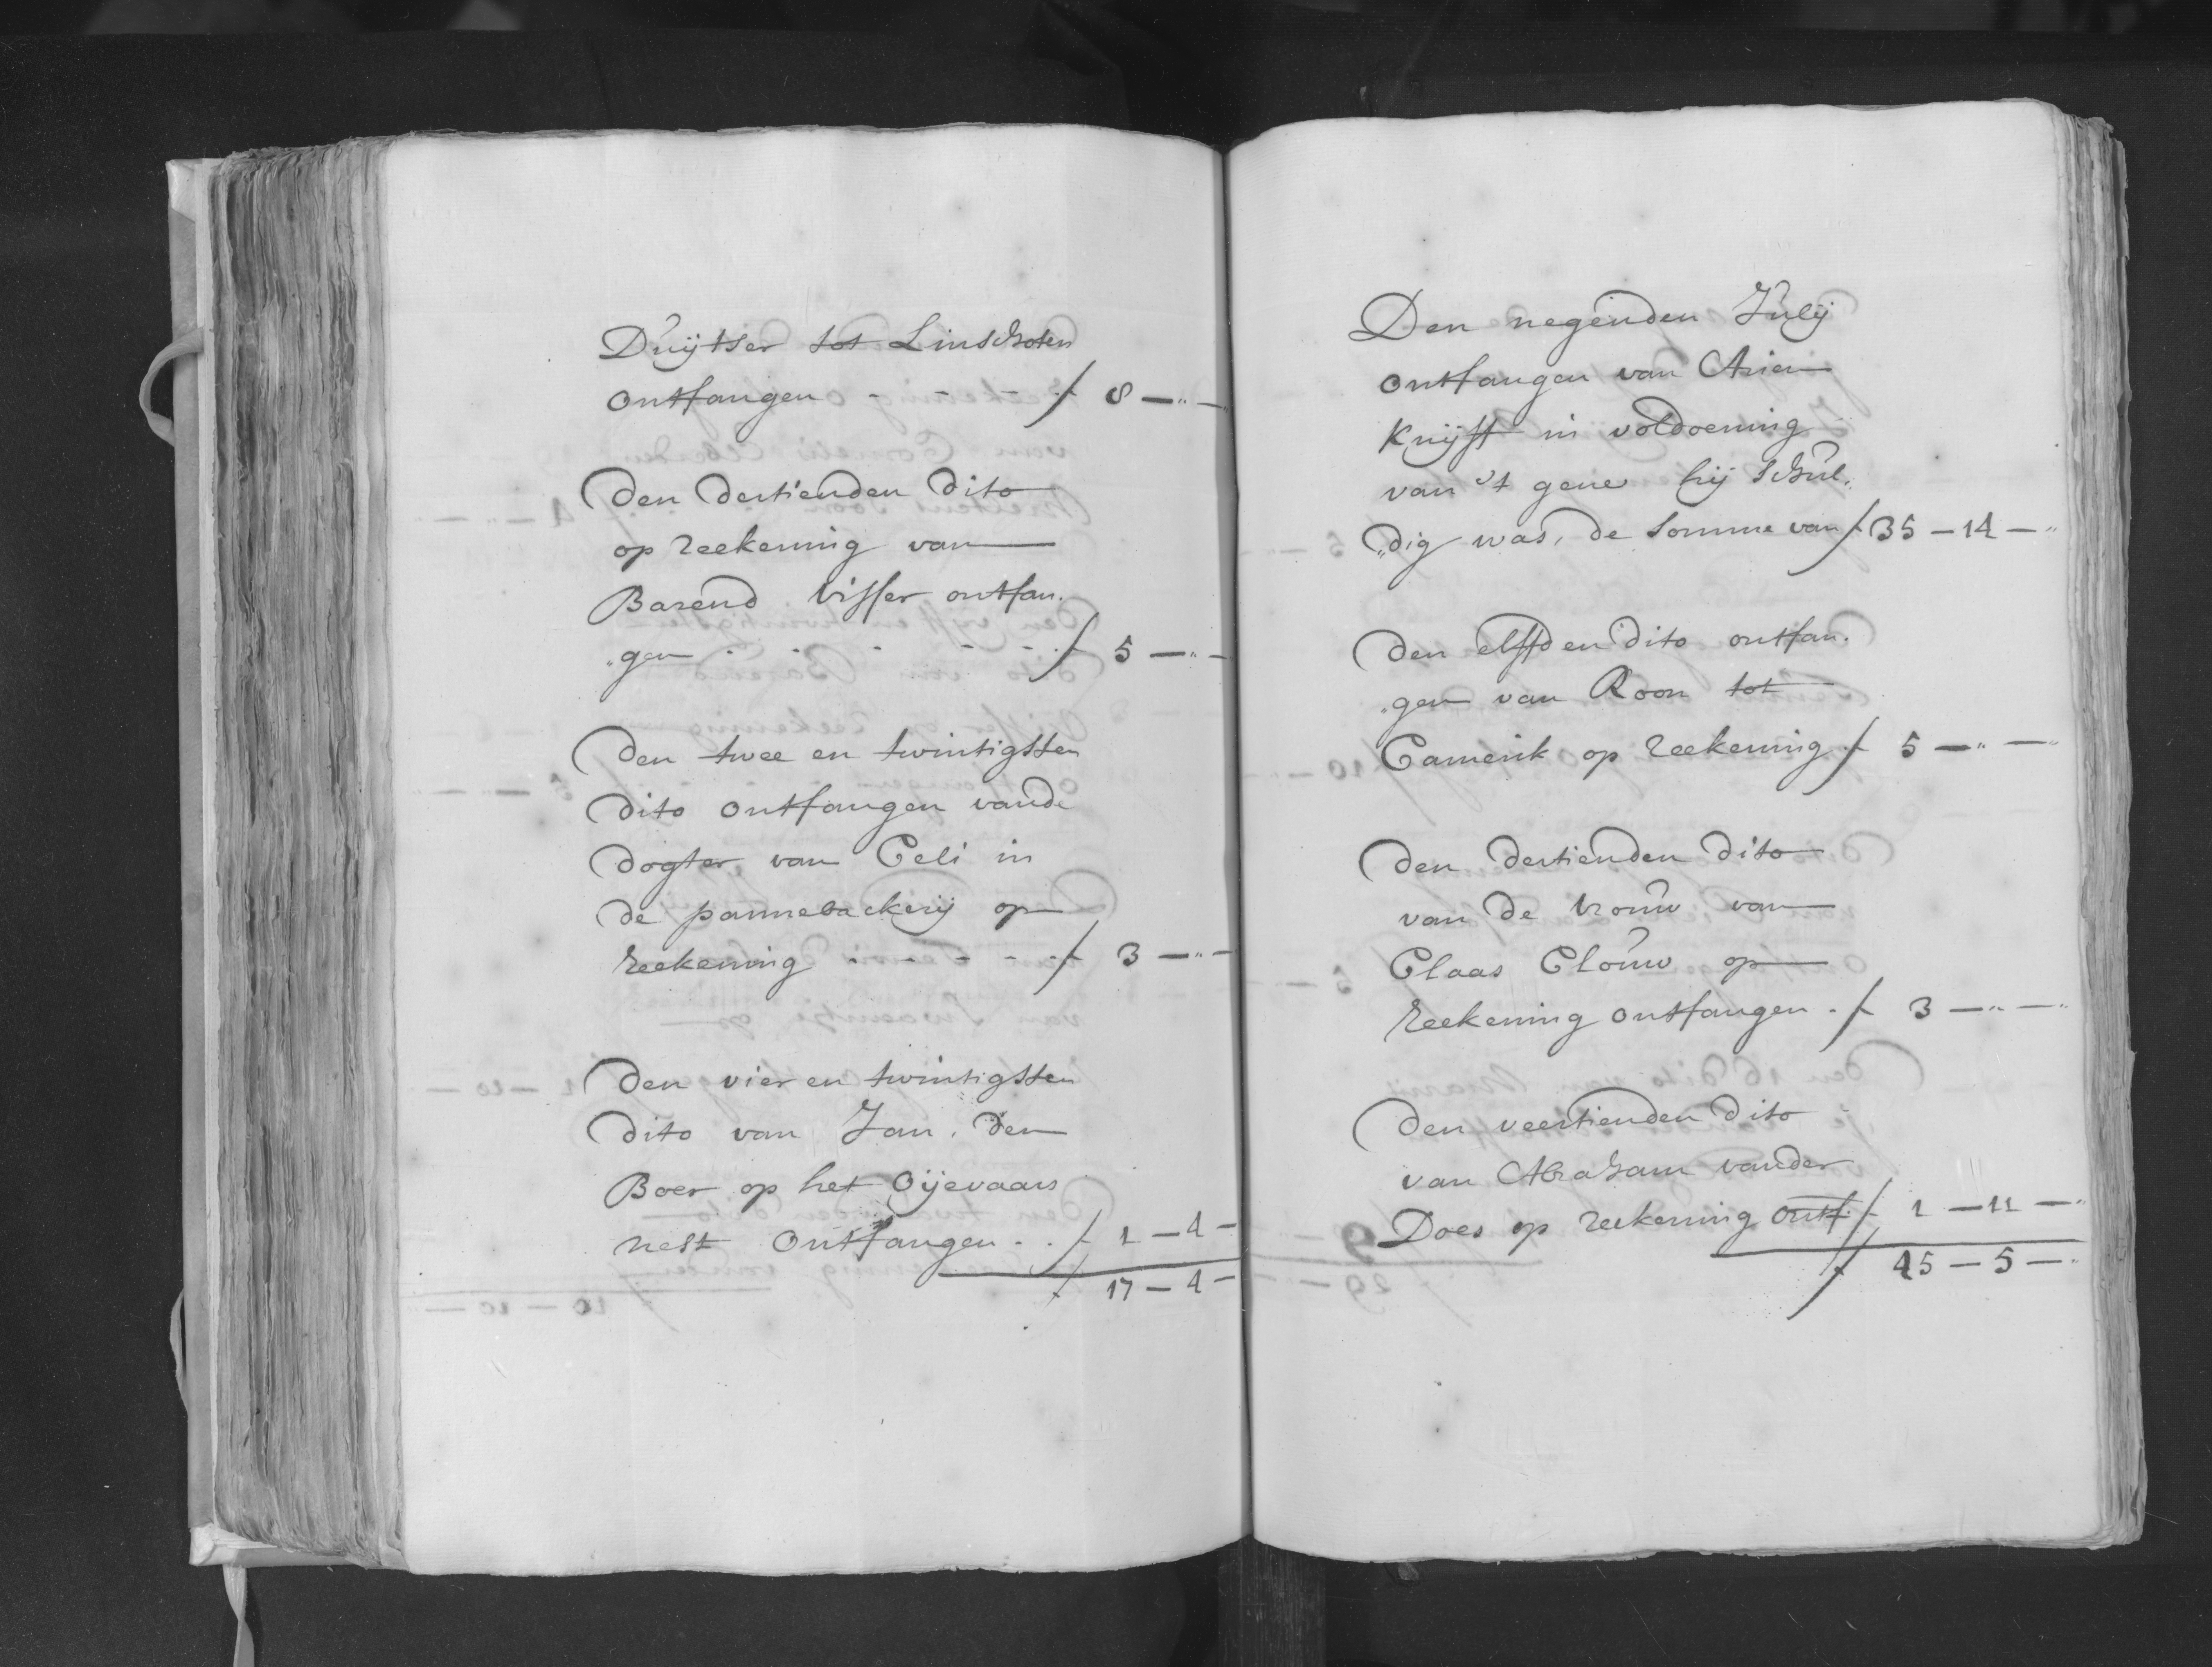 Duijtser tot Linschoten
ontfangen - - - - f 8 —"—
Den dertienden dito
op reekening van
Barend Visser ontfan.
"gen - - - - - f 5 —"—
Den twee en twintigsten
dito ontfangen vande
dogter van Celi in
de pannebackerij op
reekening - - - - - f 3 —"—
Den vier en twintigsten
dito van Jan den
Boer op het Oijevaars
nest ontfangen . . f 1 — 4 —
f 17 — 4 —
Den negenden Julij
ontfangen van Arien
Knijff in voldoening
van 't gene hij schul„
„dig was, de somme van f 35 — 14 —"
Den elffden dito ontfan.
„gen van Roon tot
Camerik op reekening f 5 —"—"
Den dertienden dito
van de vrouw van
Claas Clouw op
reekening ontfangen . f 3 —"—"
Den veertienden dito
van Abraham vander
Does op reekening ontf: f 1 — 11 —"
f 45 — 5 —"